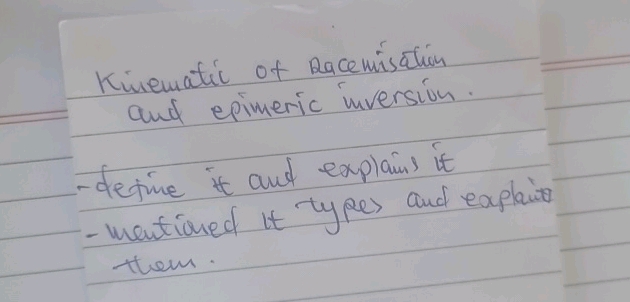 Kinematic of Racemisation
and epimeric inversion.
-define it and explains it
-mentioned it types and explains
them.